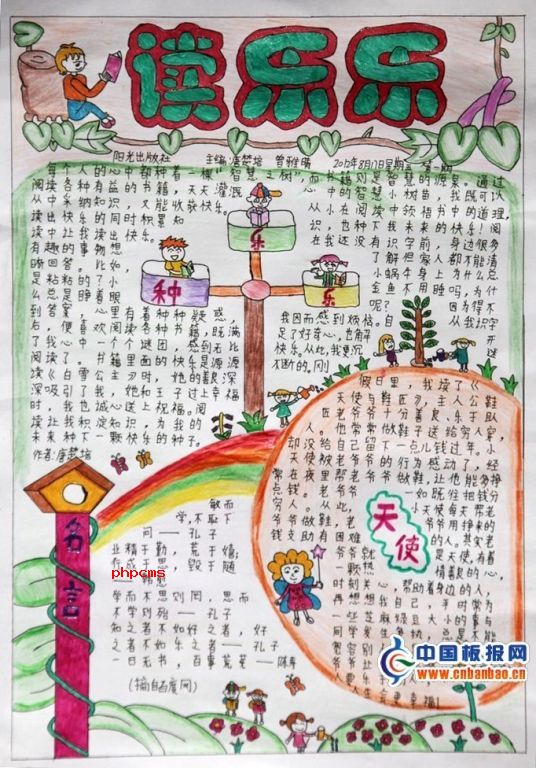 读乐乐
阳光出版社 主编:唐梦培 曾雅晴 2012年8月17日星期五 第一期
每个人的心中都种着一棵"智慧之树",而书籍则是智慧的源泉。通过
阅读各种有益的书籍,天天灌溉心中的智慧小树苗,我既可以
从中采纳知识,又能收获快乐。从小在阅读中领悟书中的道理,
读出快乐的同时积累知识,也种下我未来的快乐!阅
读中让我读出快乐。在我还没有识字前,身边很多
有趣的事物想了解但家人都不能清
晰回答。比如,小蜗牛身上为什么总
是粘粘的?小金鱼不用睡吗,为什
么总是睁着眼呢?因为得不
到答案,心里有着种种疑惑,我因而感到烦恼。自从我识字
右,便喜欢阅读各种书籍,既满足了好奇心,也解开
了我心中一个个谜团,感到无比快乐。从此,我更沉迷
阅读了。书籍里面的快乐是源源不断的。刚
读《白雪公主》时,她的善良深
深吸引了我,她和王子过上幸福
时,我也诚心送上祝福。阅
读让我积淀知识,为我的
未来种下一颗快乐的种子。
作者:唐梦培
种
乐
乐
假日里,我读了《
天使与鞋匠》,主人公鞋
匠老爷爷十分善良、乐于助
人。他常常做鞋子送给穷人家,
却没给自己留下一点儿钱过年。小
天使被老爷爷的行为感动了,经
常在夜里帮老爷爷做鞋,让他能多挣
点钱。老爷爷一如既往把钱分
穷人。从此,小天使每天帮老
爷爷做鞋,老爷爷用挣来的
钱支助有困难的人。其实老
爷爷就是天使,有着
一颗热情善良的心,
时刻关心、帮助着身边的人,
再想想我自己,平时常为
一些芝麻绿豆大小的事与
同学发生争执,总是不能
天使
名言
敏而
学,不耻下
问——孔子
业精于勤,荒于嬉;
行成于思,毁于随
phpcms
学而不思则罔,思而
不学则殆——孔子
知之者不如好之者,好
之者不如乐之者——孔子
一日无书,百事荒芜——陈寿
(摘自百度网)
中国板报网
www.cnbanbao.cn